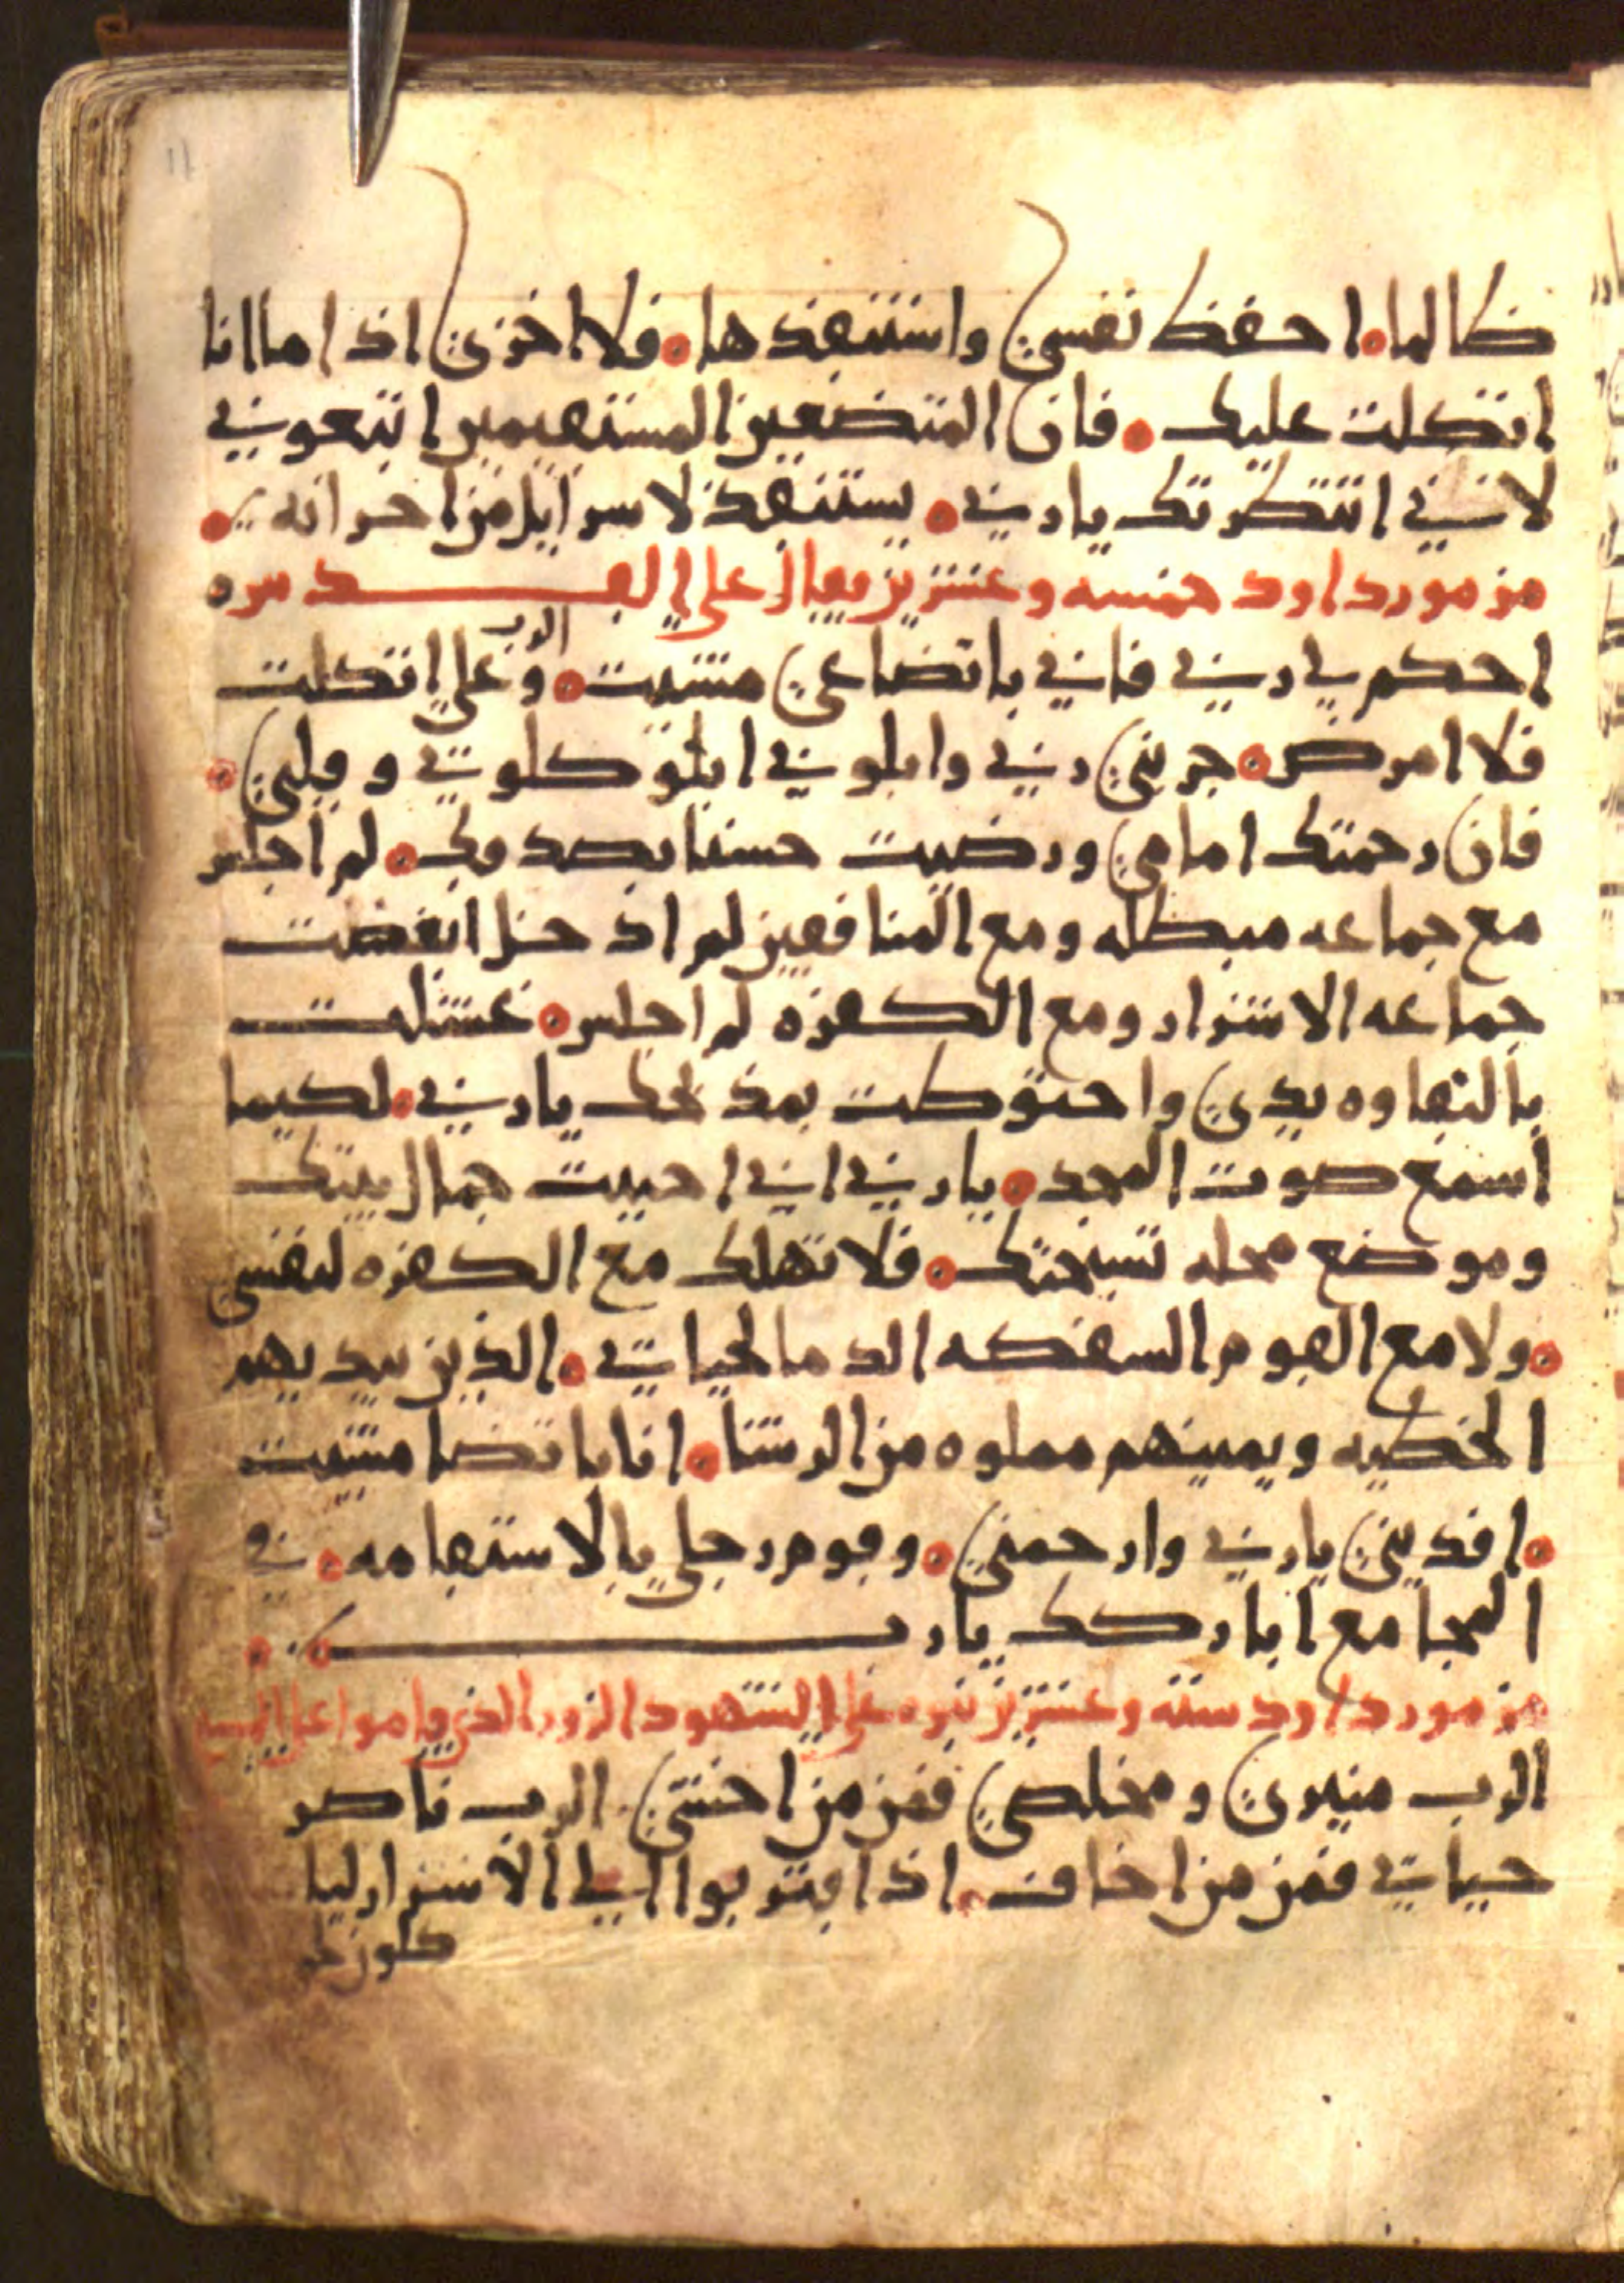 ظالما احفظ نفسي واستنقذها فلا اخزى اذا ما انا
اتكلت عليك فان المتضعين المستقيمين اتبعوني
لانني انتظرتك يا ربي يستنقذ لاسرايل من احزانه
مزمور داود خمسه وعشرين يقال على القدس
احكم لي ربي فاني باتضاعي مشيت وعلى الرب اتكلت
فلا امرض جربني ربي وابلوني ابلو كلوتي وقلبي
فان رحمتك امامي ورضيت حسنا بصدقك لم اجلس
مع جماعه مبطله ومع المنافقين لم ادخل ابغضت
جماعه الاشرار ومع الكفره لم اجلس غسلت
بالنقاوه يدي واحتوطت بمذبحك يا ربي لكيما
اسمع صوت المجد يا ربي اني احببت جمال بيتك
وموضع محله تسبحتك فلا تهلك مع الكفره لنفسي
ولا مع القوم السفكه الدما لحياتي الذين بيديهم
الخطيه ويمينهم مملوه من الرشا انا باتضا مشيت
افديني يا ربي وارحمني وقوم رجلي بالاستقامه في
المجامع اباركك يا رب
مزمور داود سته وعشرين نبوه على الشهود الزور الذي قاموا على المسيح
الرب منيري ومخلصي فمن من اخشي الرب ناصر
حياتي فمن من اخاف اذا اقتربوا الي الاشرار ليا
كلون لحم